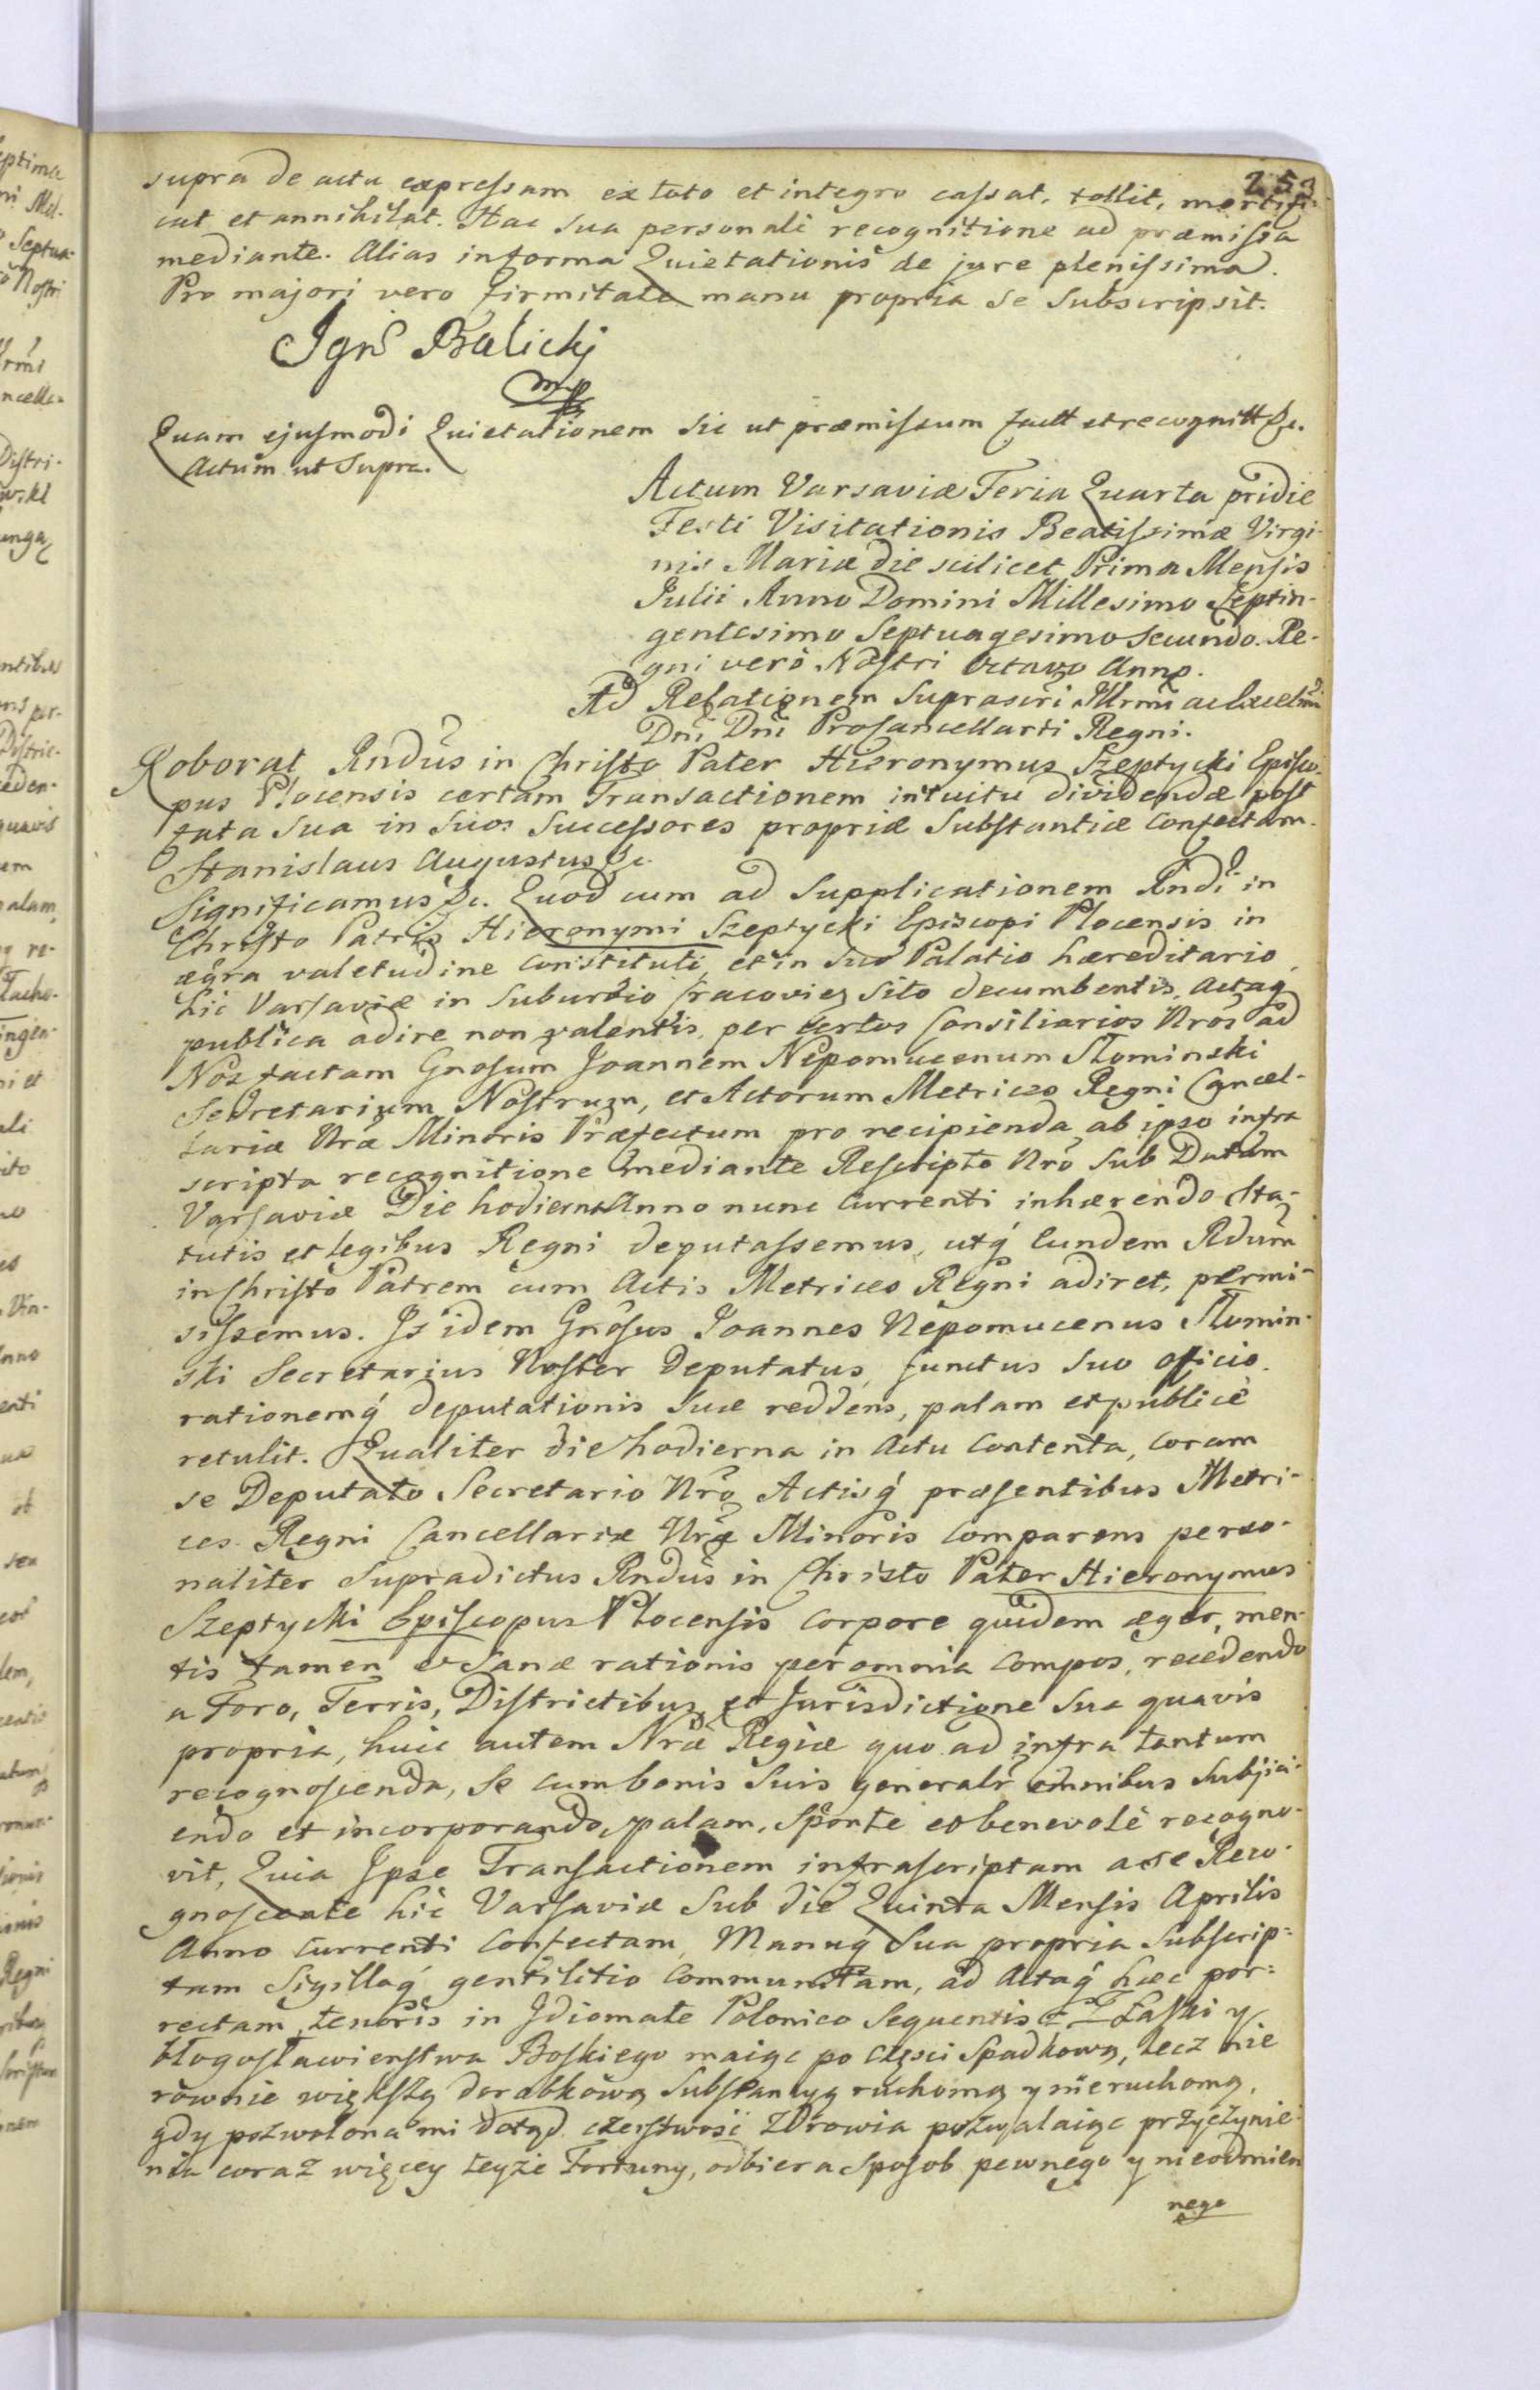 253
supra de actu expressam ex toto et integro cassat, tollit, mortifi-
cat et annihilat. Hac sua personali recognitione ad præmissa
mediante. Alias informa Quietationis de jure plenissima.
Pro majori vero firmitate manu propria se subscripsit.
Ign͂s Balicki
mp
Quam ejusmodi Quietationem sic ut præmissum facit et recognitt &c.
Actum ut Supra.
Actum Varsaviæ Feria Quarta pridie
Festi Visitationis Beatissimæ Virgi-
nis Mariæ die scilicet Prima Mensis
Julii Anno Domini Millesimo Septin-
gentesimo Septuagesimo Secundo. Re-
gni verò Nostri Octavo Anno.
Ad Relationem Suprascri Illrmi ac Excellmi
Dni Dni Procancellarii Regni.
Roborat Rndus in Christo Pater Hieronymus Szeptycki Episco-
pus Plocensis certam Transactionem intuitu dividendæ post
fata sua in suos Successores propriæ Substantiæ Confectam.
Stanislaus Augustus &c.
Significamus &c. Quod cum ad Supplicationem Rndi in
Christo Patris Hieronymi Szeptycki Episcopi Plocensis in
ægra valetudine Constituti, et in Suo Palatio hæreditario
hic Varsaviæ in Suburbio Cracovien sito decumbentis, Actaq́
publica adire non valentis, per certos Consiliarios Nros ad
Nos factam Gnosum Joannem Nepomucenum Słominski
Secretarium Nostrum, et Actorum Metrices Regni Cancel-
lariæ Nræ Minoris Præfectum pro recipienda ab ipso infra
scripta recognitione mediante Rescripto Nro sub Datam
Varsaviæ Die hodierna Anno nunc Currenti inhærendo Sta-
tutis et legibus Regni deputassemus, utq́ Eundem Rdum
in Christo Patrem cum Actis Metrices Regni adiret, permi-
sissemus. Is idem Gnosus Joannes Nepomucenus Słomin-
ski Secretarius Noster Deputatus, functus suo officio.
rationemq́ deputationis suæ reddens, palam et publicè
retulit. Qualiter die hodierna in Actu Contenta, coram
se Deputato Secretario Nro Actisq́ præsentibus Metri-
ces Regni Cancellariæ Nræ Minoris Comparens perso-
naliter Supradictus Rndus in Christo Pater Hieronymus
Szeptycki Episcopus Plocensis Corpore quidem æger, men-
tis tamen et Sanæ rationis per omnia Compos, recedendo
a Foro, Terris, Districtibus et Jurisdictione Sua quavis
propria, huic autem Nræ Regiæ quo ad infra tantum
recognoscenda, se cum bonis suis generalr omnibus Subjici-
endo et incorporando, palam, Sponte et benevolè recogno-
vit, Quia Ipse Transactionem infrascriptam a se Reco-
gnoscente hic Varsaviæ Sub die Quinta Mensis Aprilis
Anno Currenti Confectam, Manuq́ Sua propria Subscrip-
tam Sigilloq́ gentilitio Communitam, ad Actaq́ hæc por-
rectam, tenoris in Idiomate Polonico Sequentis Z Łaski y
błogosławienstwa Boskiego maiąc po części Spadkową, lecz nie
rownie większą dorobkową Substancyą ruchomą y nieruchomą,
gdy pozwolona mi dotąd czerstwość zdrowia pozwalaiąc przyczynie-
nia coraz więcey teyże Fortuny, odbiera sposob pewnego y nieodmien
nego